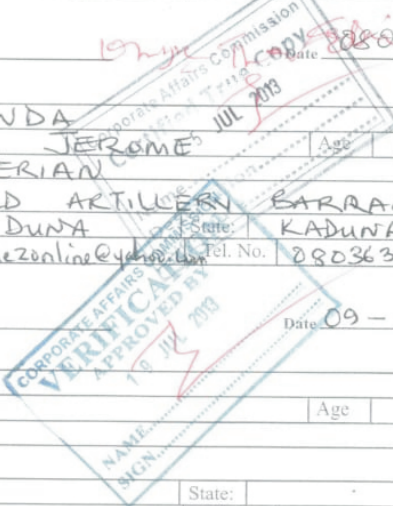 Date
NDA
JEROME
Age
ERIAN
D ARTILLERY BARRA
DUNA State: KADUNA
ezonline@yahoo.com Tel. No. 080363
Corporate Affairs Commission
Certified True Copy
5 JUL 2013
CORPORATE AFFAIRS COMMISSION
VERIFICATION
APPROVED BY
JUL 2013
NAME
SIGN
Date 09 -
Age
State: